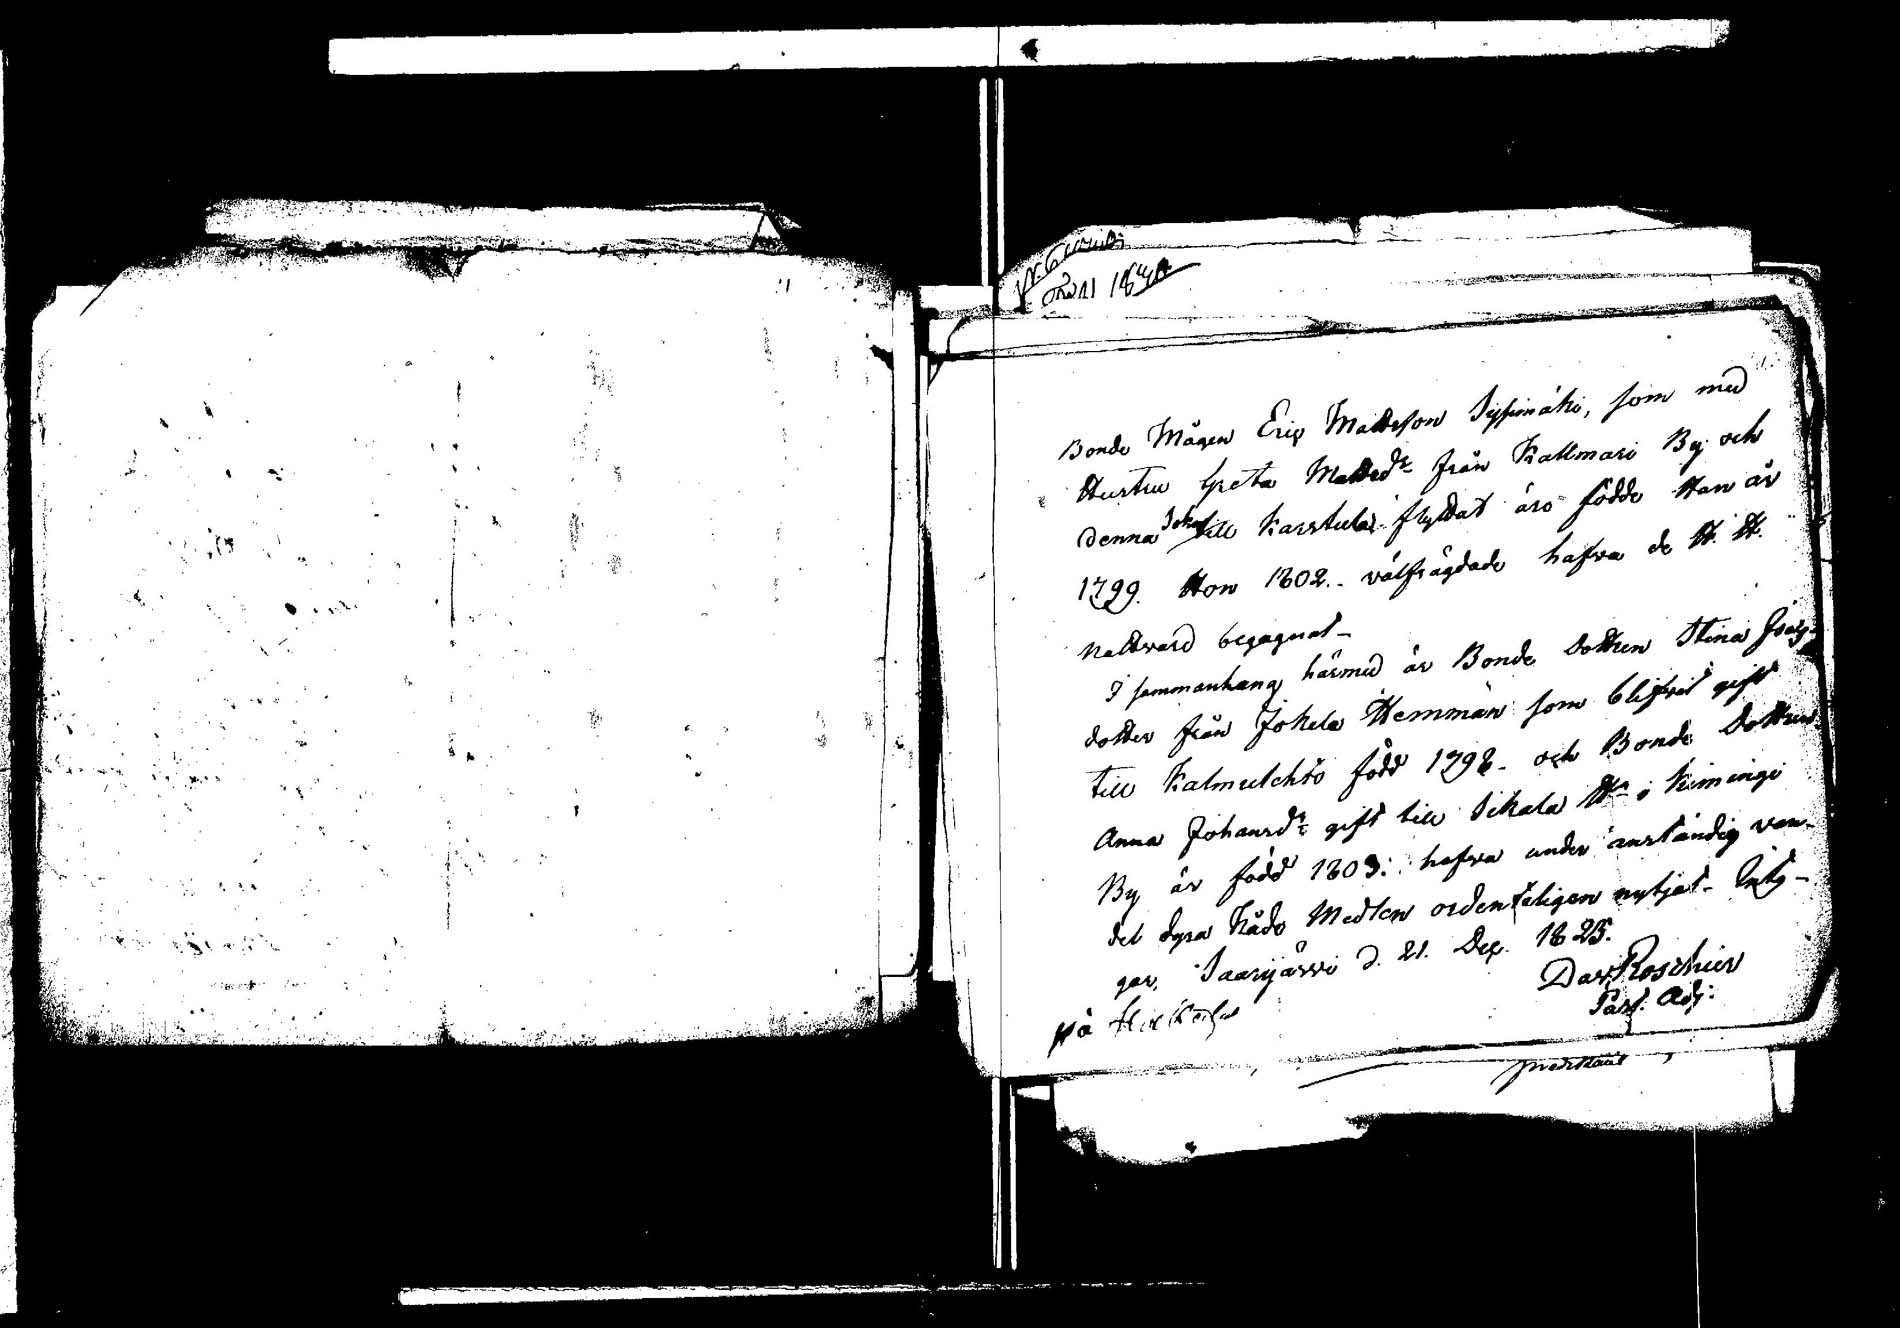 Bonde Mågen Eric Mattsson Sysimäki, som med
Hustru Greta Mattsdr från Kallmari By och
denna Sokn till Karstula flyttat äro födde Han år
1799. Hon 1802. - välfrägdade hafva de H. H.
Nattvard begagnat -
I sammanhang härmed är Bonde Dottren Stina Isacs-
dotter från Jokela Hemman som blifvit gift
till Kalmulehto född 1798 - och Bonde Dottren
Anna Johansdr gift till Sikala Hn i Kimingi
By är född 1803: hafva under anständig van-
del dyra Nåde Medlen ordenteligen nytjat - Inty-
gar, Saarijärvi d. 21. Dec. 1825.
Dav. Roschier
Past. Adj:
på